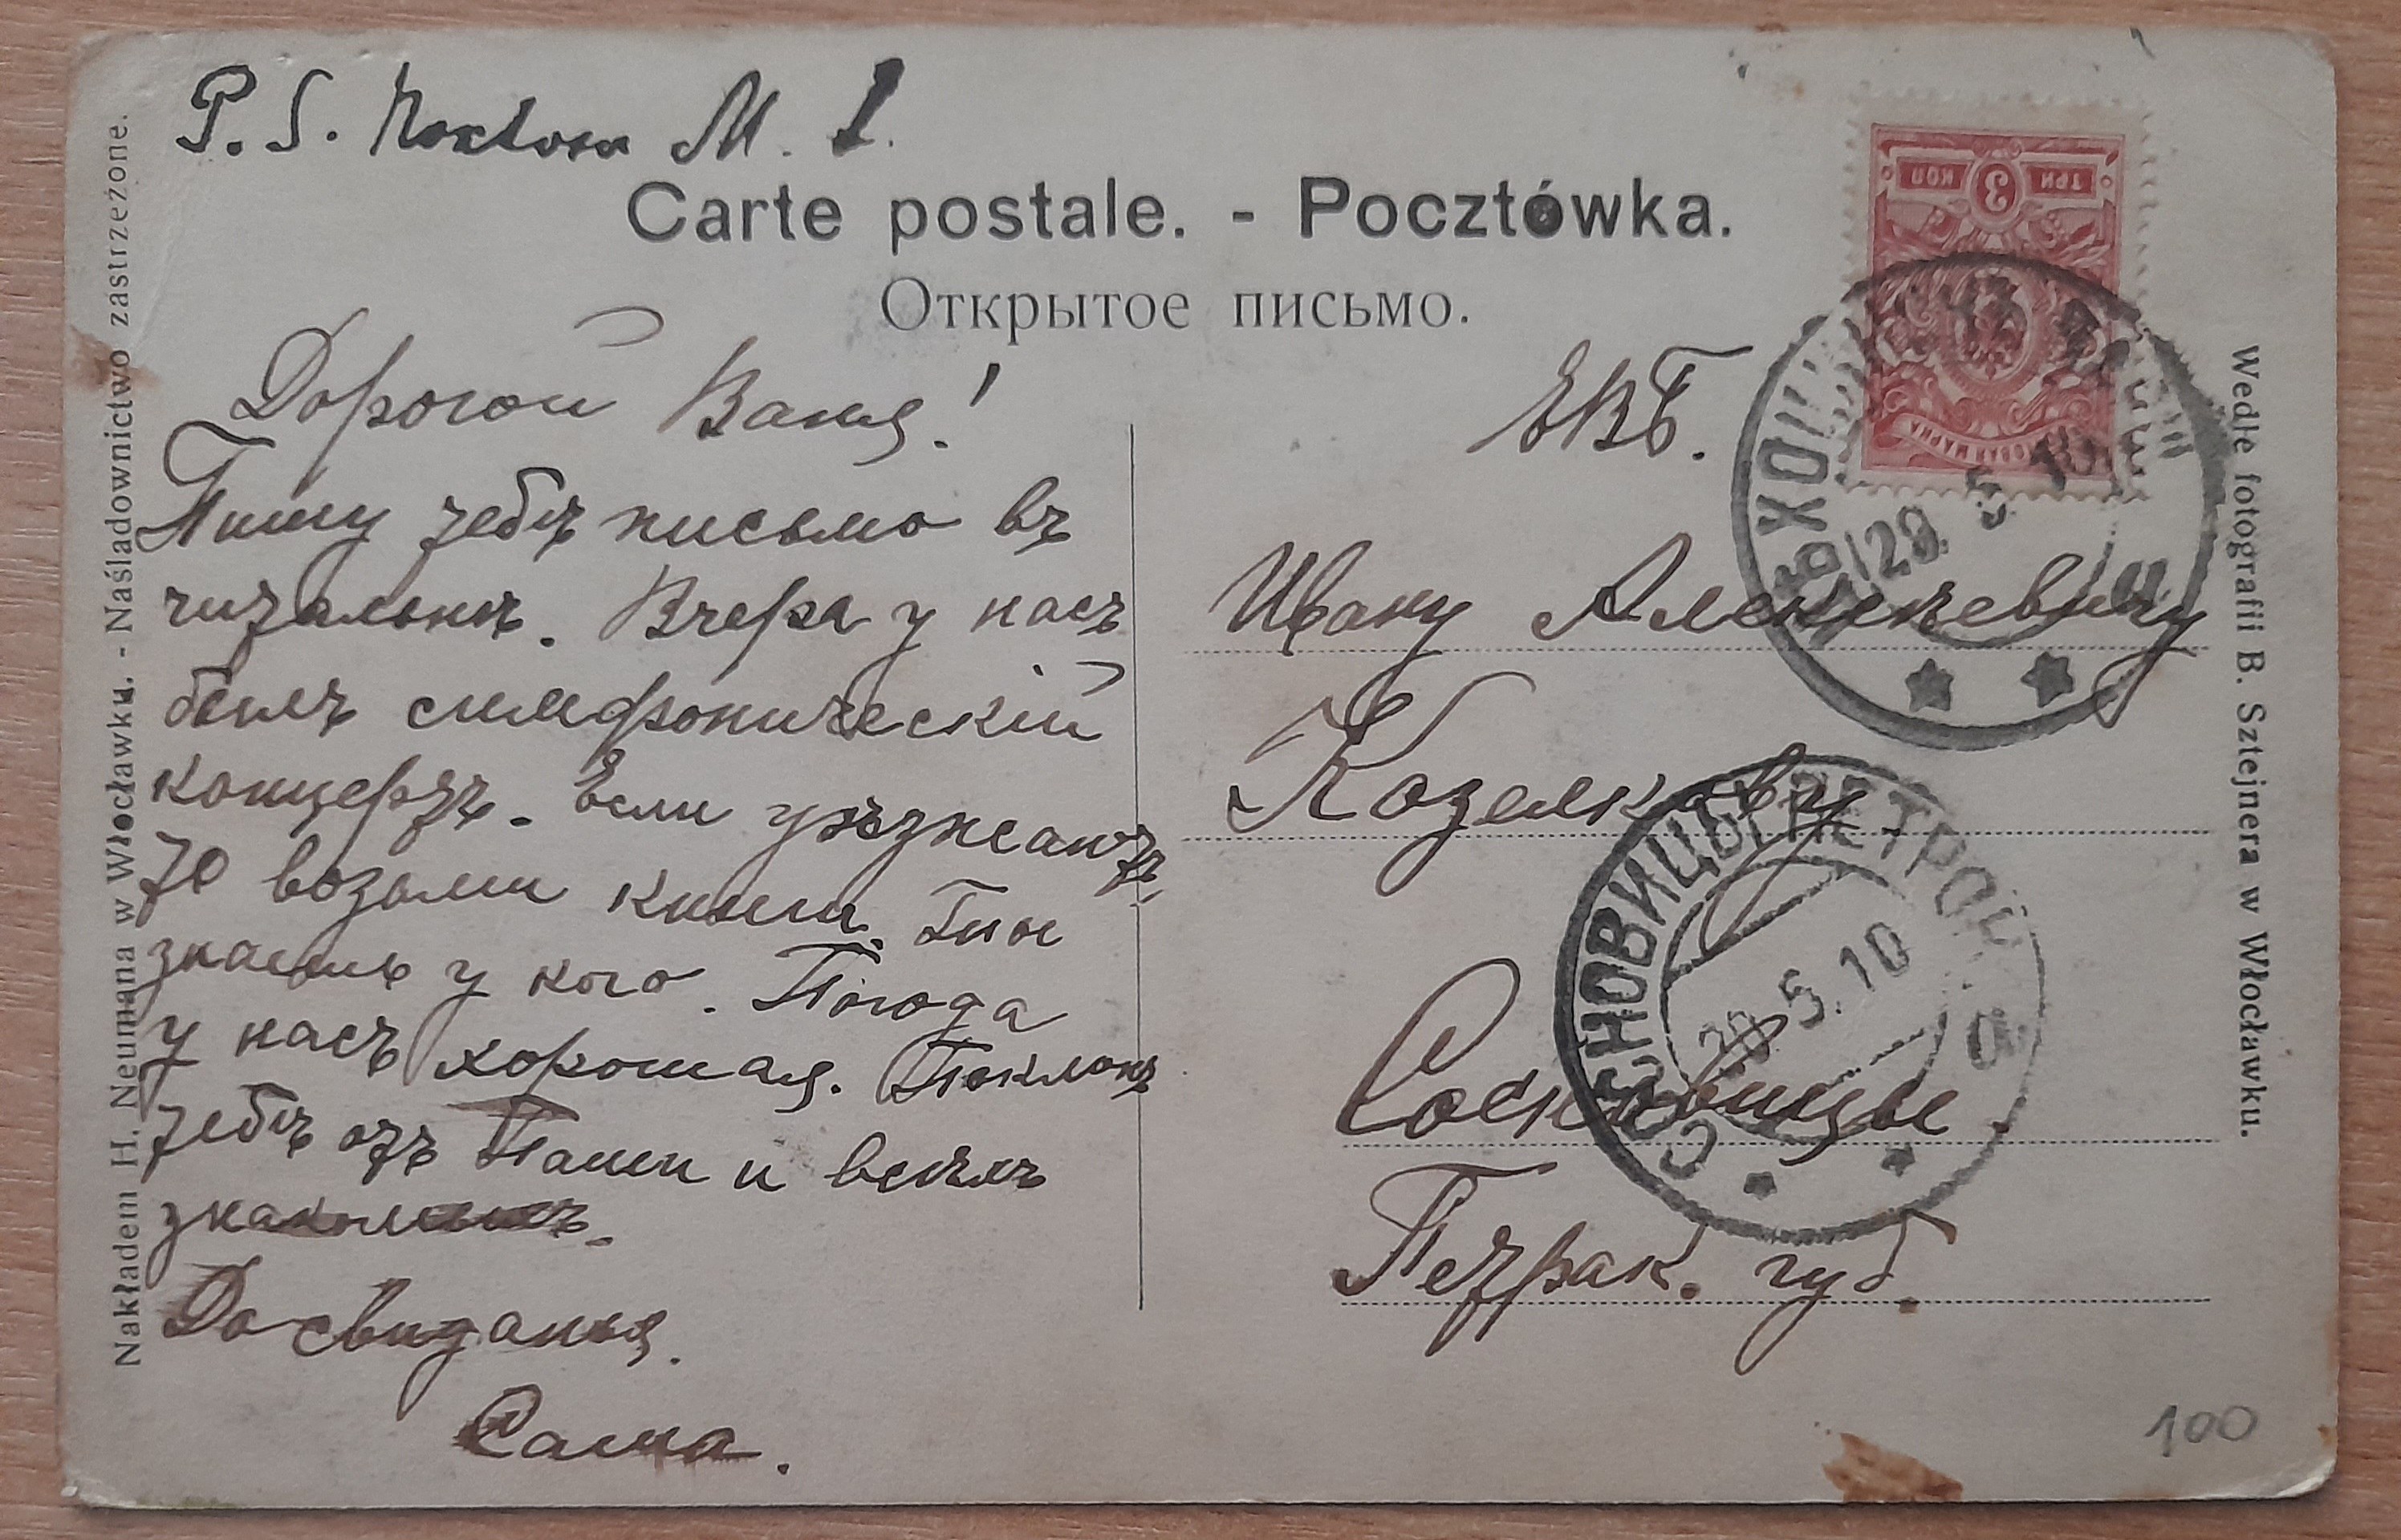 P. S.
Carte postale. - Pocztówka.
Открытое письмо.
Дорогой Ваня!
Пишу тебѣ письмо въ
читальнѣ. Вчера у насъ
былъ симфоническій
концертъ. Если уѣзжаютъ,
то возьми книги. Ты
знаешь у кого. Погода
у насъ хорошая. Поклонъ
тебѣ отъ Паши и всѣхъ
знакомыхъ.
До свиданья.
Саша.
ЕВБ.
Ивану Алексѣевичу
Козелкову
Сосновицы
Петрок. губ.
ТРИ 3 КОП
29. 5. 10
СОСНОВИЦЫ ПЕТРОК
5. 10
Nakładem H. Neumana w Włocławku. - Naśladownictwo zastrzeżone.
Wedle fotografii B. Sztejnera w Włocławku.
100